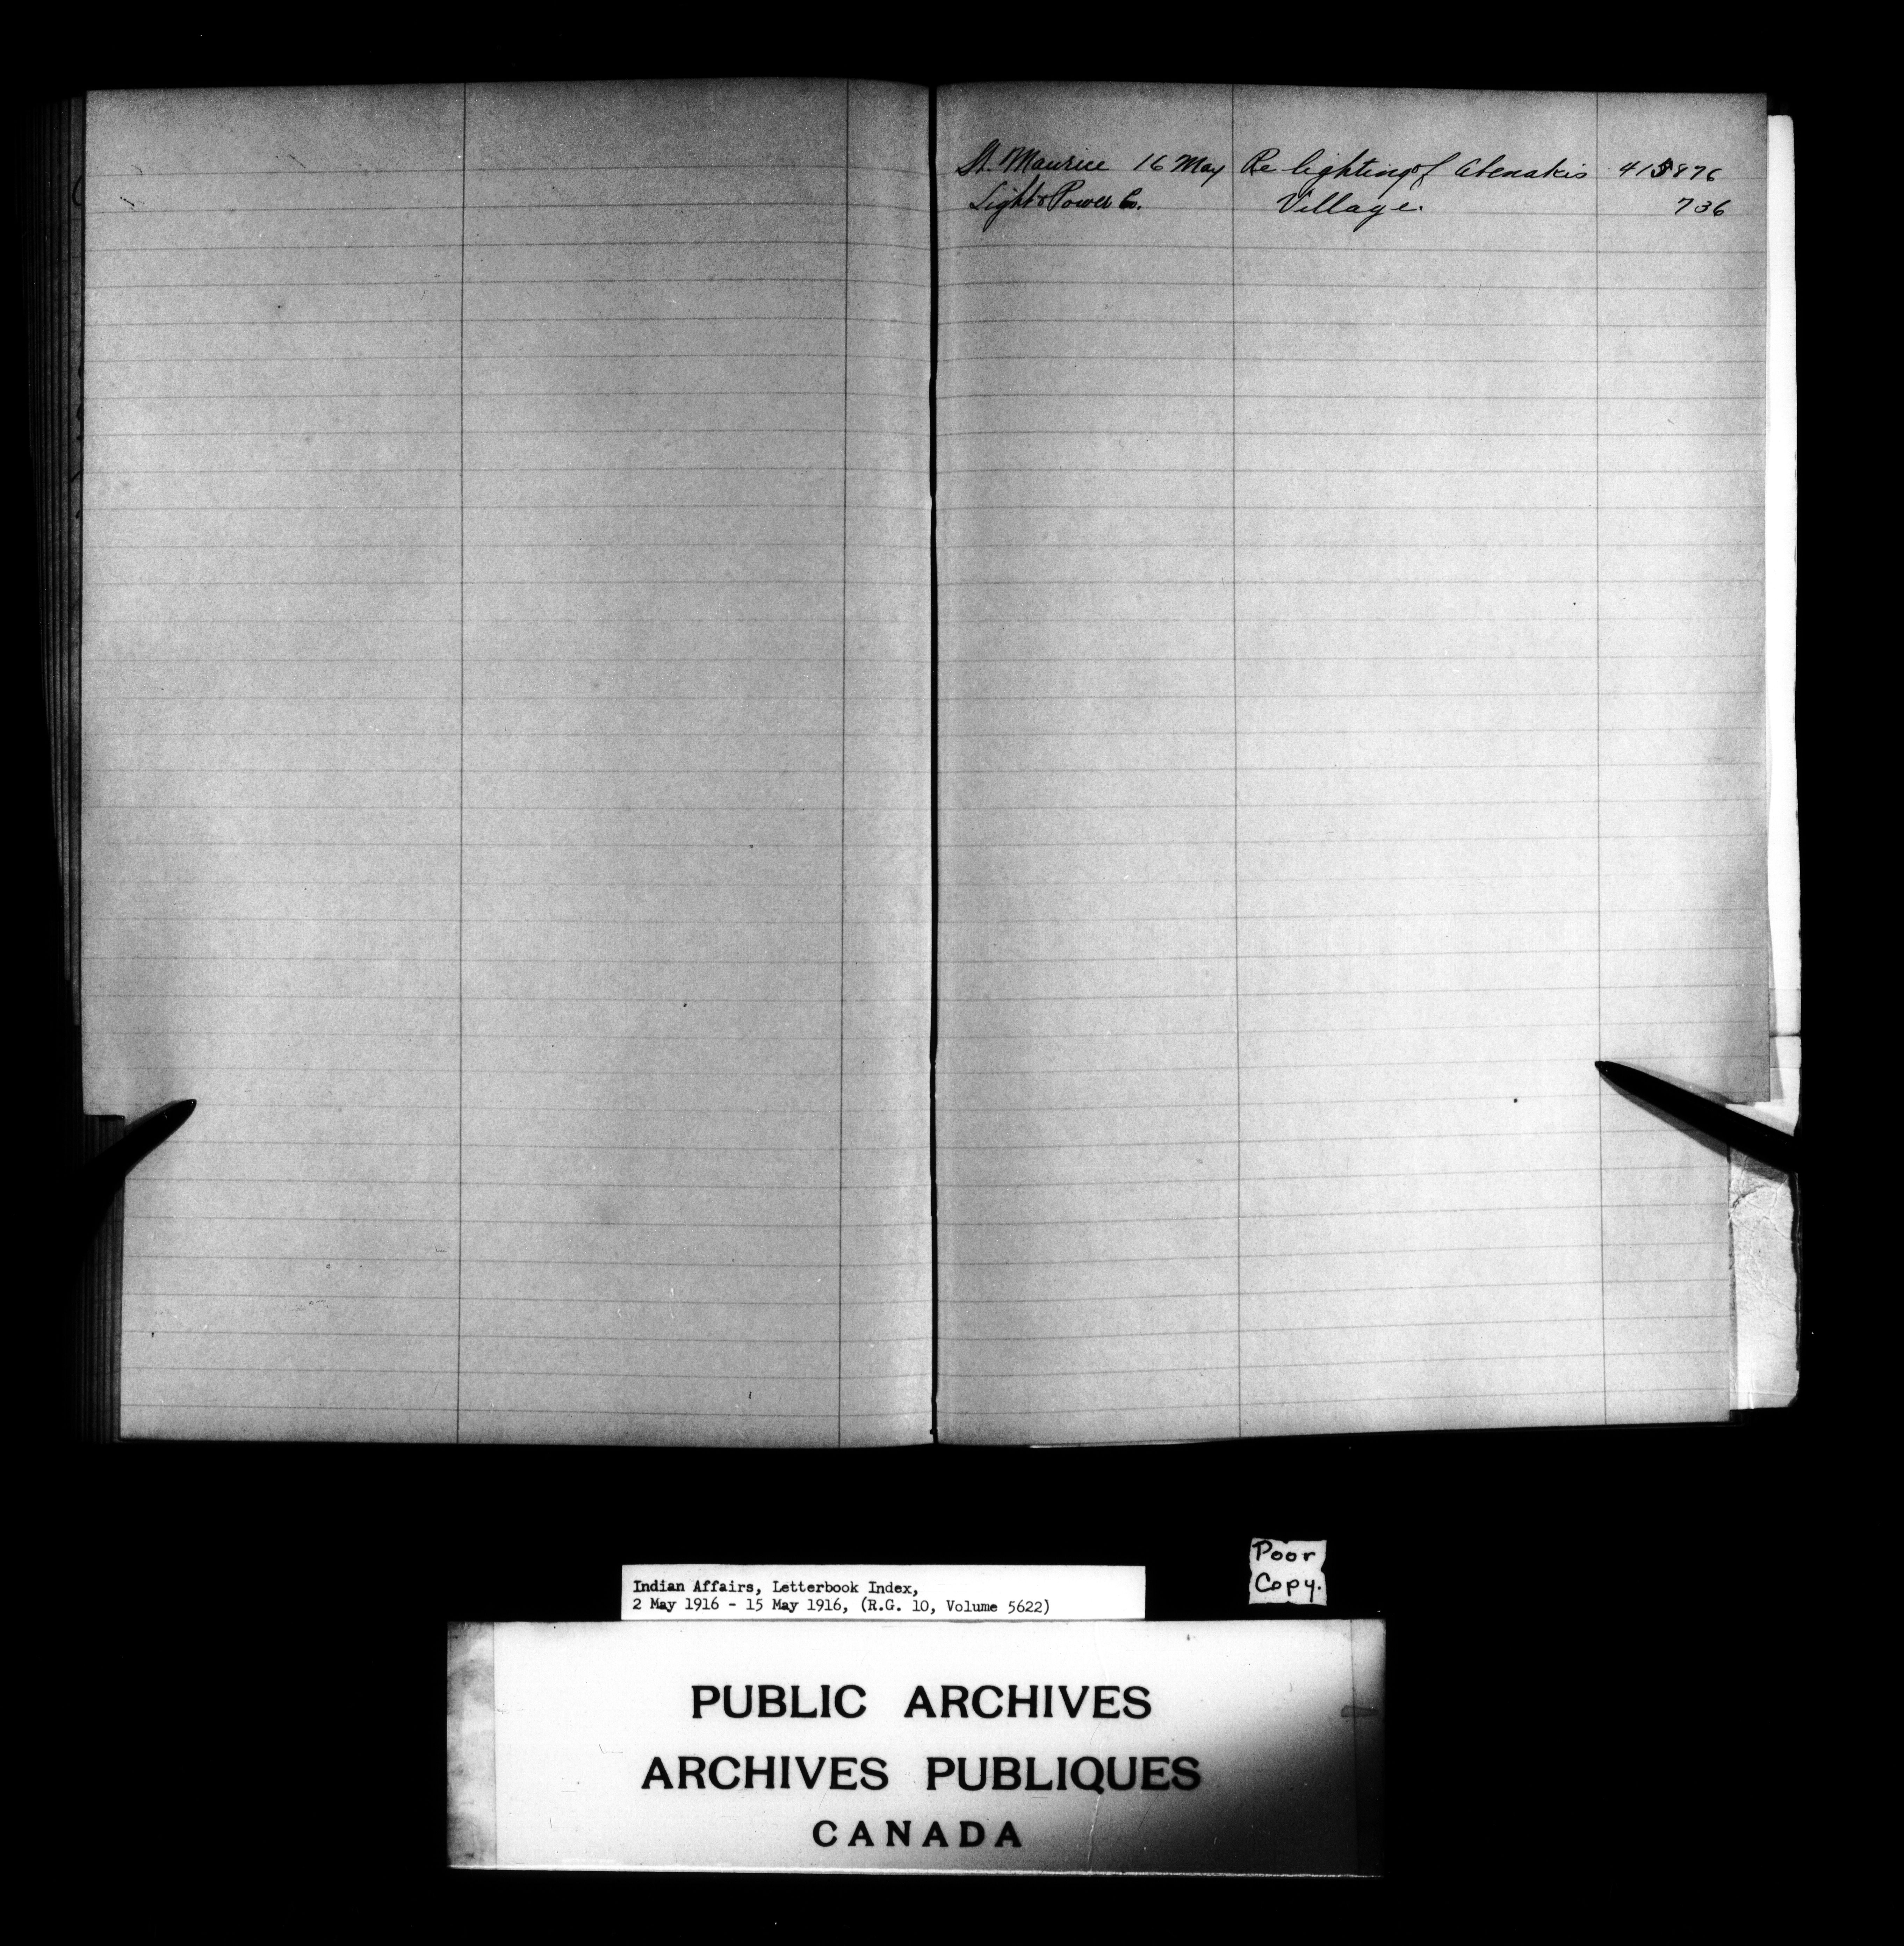 St. Maurice 16 May Re lighting of Abenakis 415876
Light & Power Co. Village. 736
Poor
Copy.
Indian Affairs, Letterbook Index,
2 May 1916 - 15 May 1916, (R.G. 10, Volume 5622)
PUBLIC ARCHIVES
ARCHIVES PUBLIQUES
CANADA